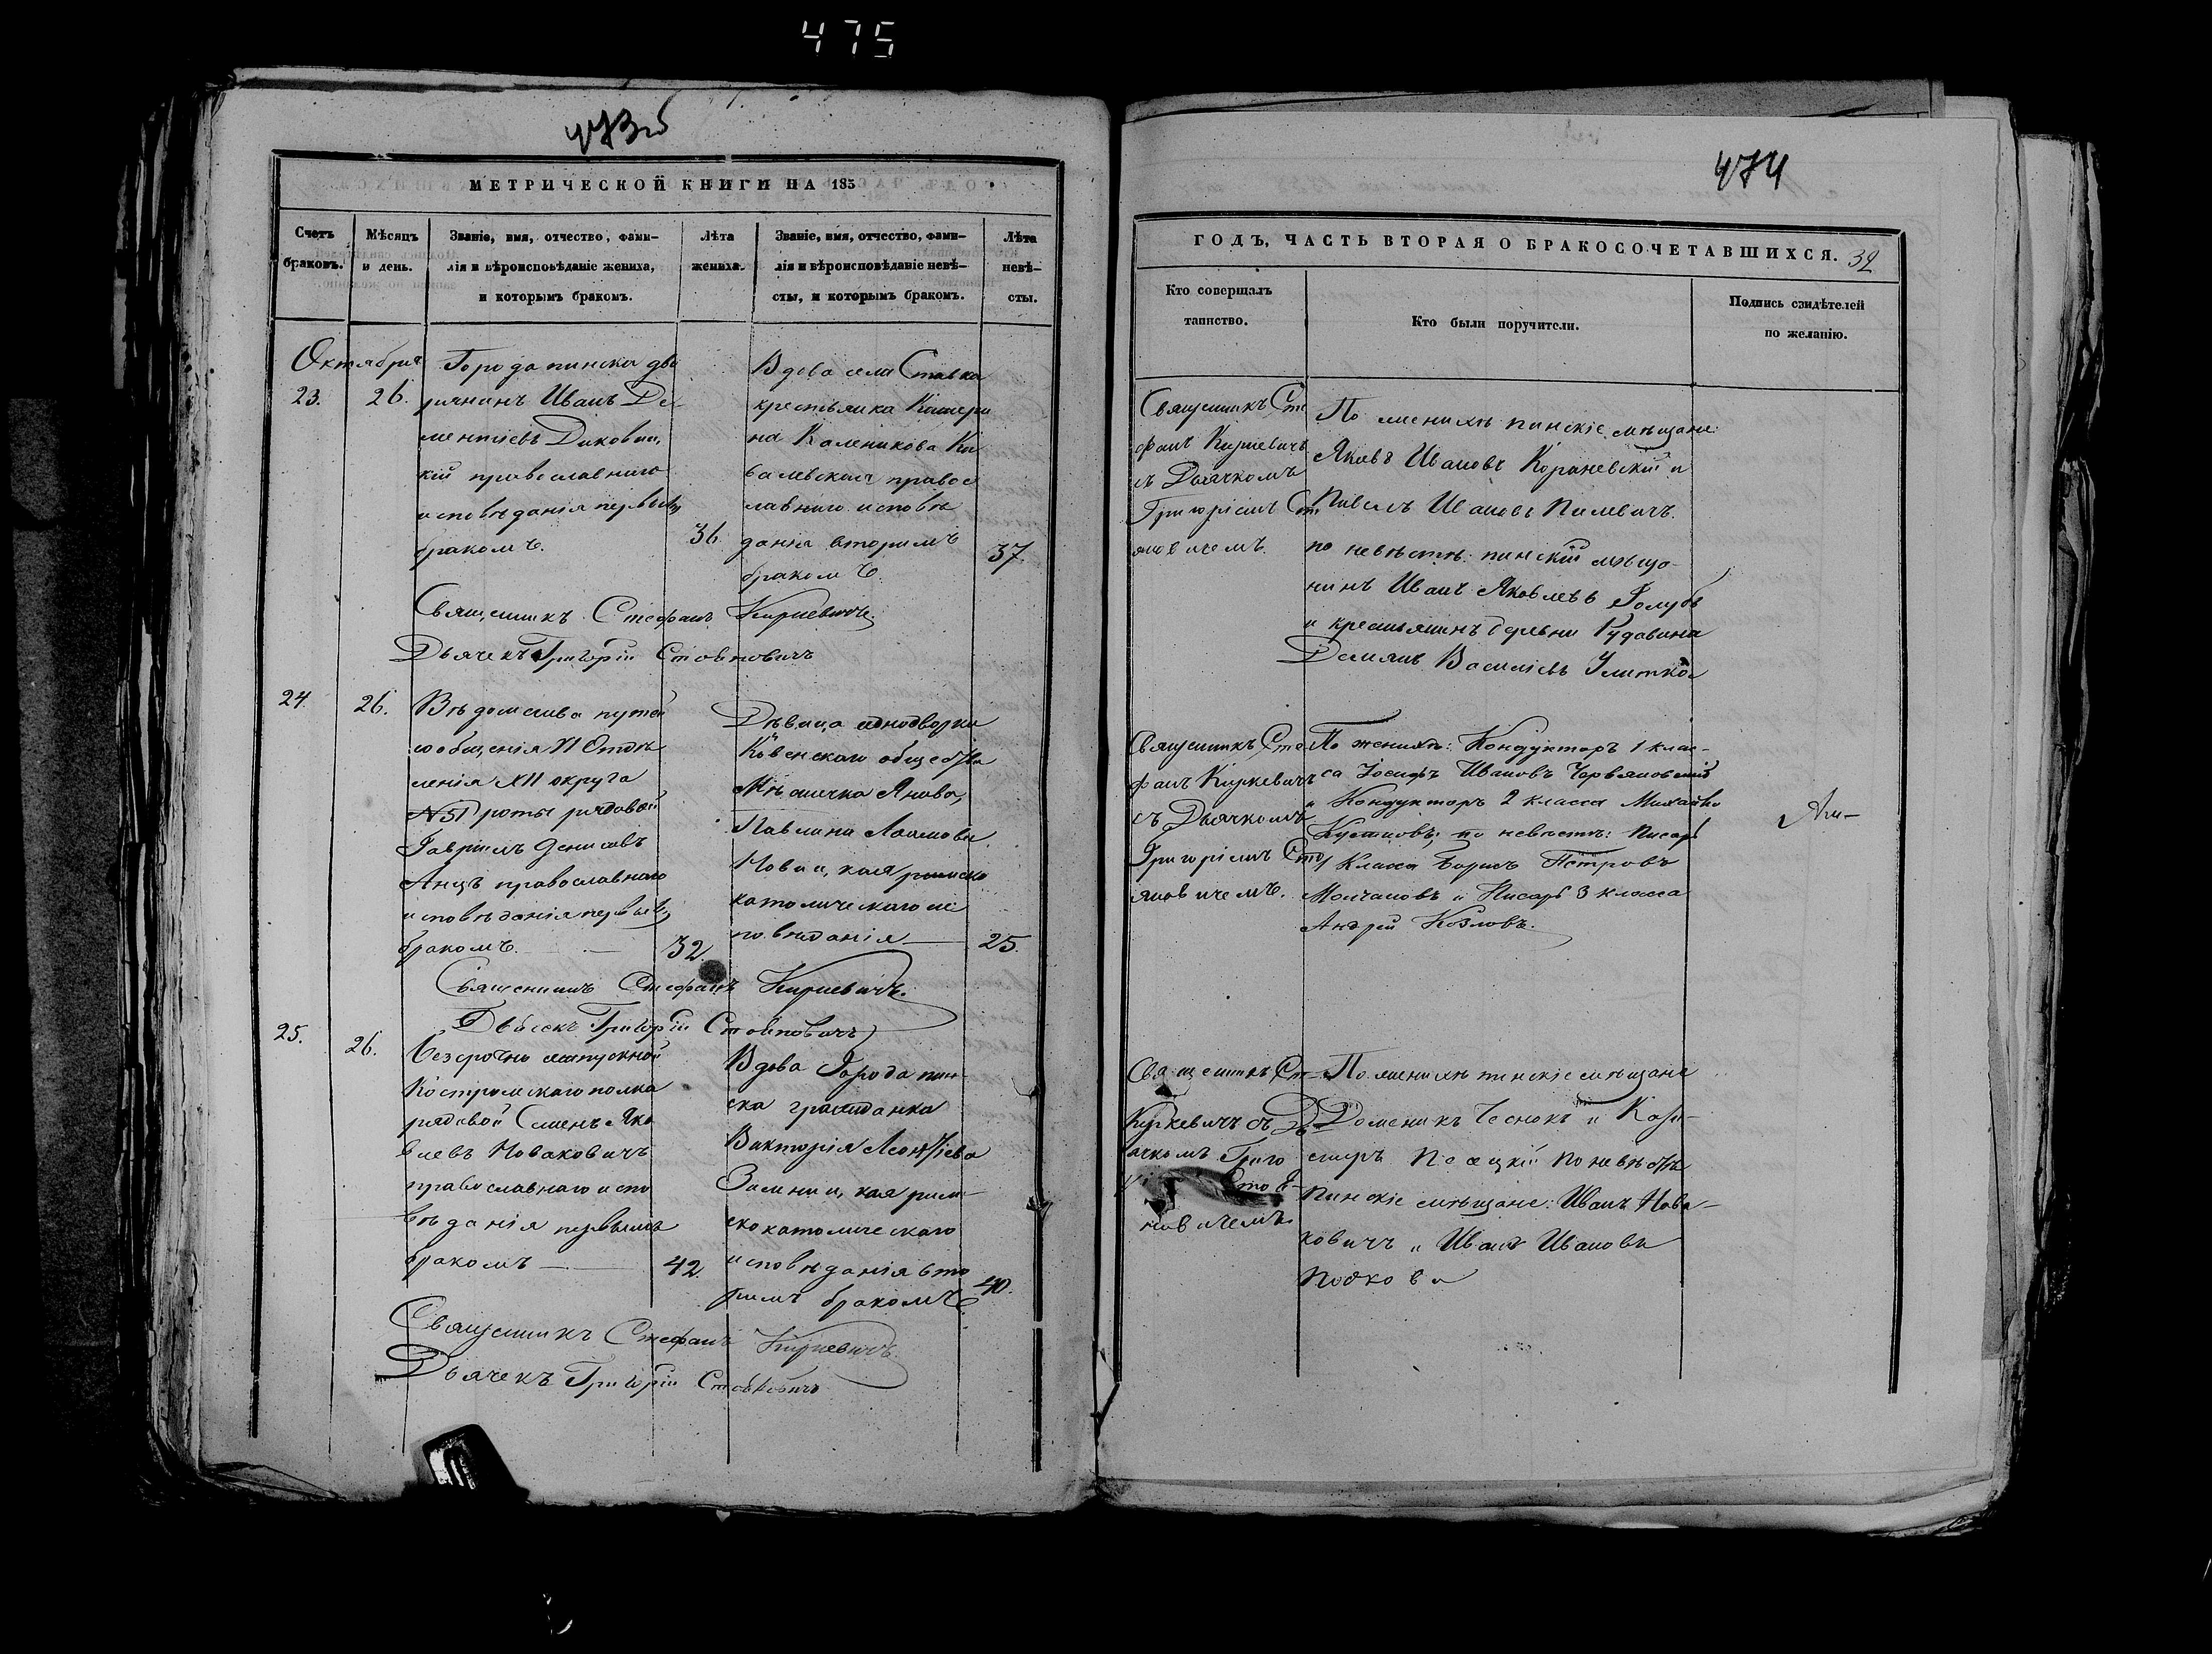 475
474
МЕТРИЧЕСКОЙ КНИГИ НА 185
Счетъ браковъ.
Мѣсяцъ и день.
Званіе, имя, отчество, фами-
лія и вѣроисповѣданіе жениха,
и которымъ бракомъ.
Лѣта жениха.
Званіе, имя, отчество, фами-
лія и вѣроисповѣданіе невѣ-
сты, и которымъ бракомъ.
Лѣта невѣ-
сты.
Октября
23.
26.
Города пинска дво
рянинъ Иванъ Де
ментіевъ
кій православнаго
исповѣданія первымъ
бракомъ.
36.
Вдова села Ставка
крестьянка Катери
на Каленикова Ко
валевская правос
лавнаго исповѣ
данія вторимъ
бракомъ
37.
Священникъ Стефанъ Киркевичъ.
Дьячекъ Григорій Стояновичъ
24.
26.
Вѣдомства путей
сообщенія VI Отдѣ
ленія XII округа
роты рядовой
Гавріилъ Денисовъ
православнаго
исповѣданія первымъ
бракомъ.
32.
Дѣвица однодворка
Ковенскаго общества
Мѣстечка Янова,
Павлина
римско
католическаго ис
повѣданія
25.
Священникъ Стефанъ Киркевичъ.
Дьячекъ Григорій Стояновичъ
25.
26.
Безсрочно отпускной
Костромскаго полка
рядовой Семенъ Яко
влевъ Новаковичъ
православнаго испо
вѣданія первымъ
бракомъ
42.
Вдова Города пин-
ска гражданка
Викторія Леонтіева
рим-
скокатолическаго
исповѣданія вто
римъ бракомъ
40.
Священникъ Стефанъ Киркевичъ
Дьячекъ Григорій Стояновичъ
ГОДЪ, ЧАСТЬ ВТОРАЯ О БРАКОСОЧЕТАВШИХСЯ.
32
Кто совершалъ
таинство.
Кто были поручители.
Подпись свидѣтелей
по желанію.
Священникъ Сте
фанъ Киркевичъ
съ Дьячкомъ
Григоріемъ Сто
яновичемъ.
По женихѣ пинскіе мѣщане:
Яковъ Ивановъ Кораневскій и
Павелъ Ивановъ Пилевичъ.
по невѣстѣ: пинскій мѣща-
нинъ Иванъ Яковлевъ Голубъ
и крестьянинъ деревни Рудавина
Демянъ Василіевъ Улитко
Священникъ Сте
фанъ Киркевичъ
съ Дьячкомъ
Григоріемъ Сто
яновичемъ.
По женихѣ: Кондукторъ 1 клас-
са Іосифъ Ивановъ Червяковскій
и Кондукторъ 2 класса Михайло
Кустовъ; по невѣстѣ: Писарь
1 Класса Борисъ Петровъ
Молчановъ и Писарь 3 класса
Андрей Козловъ.
Священникъ Ст
Киркевичъ съ Дь
ячкомъ Григо
Стоя
новичемъ.
По женихѣ пинскіе мѣщане
Доменикъ Чеснокъ и Кази-
миръ по невѣстѣ
пинскіе мѣщане: Иванъ Нова-
ковичъ и Иванъ Ивановъ
Подкова